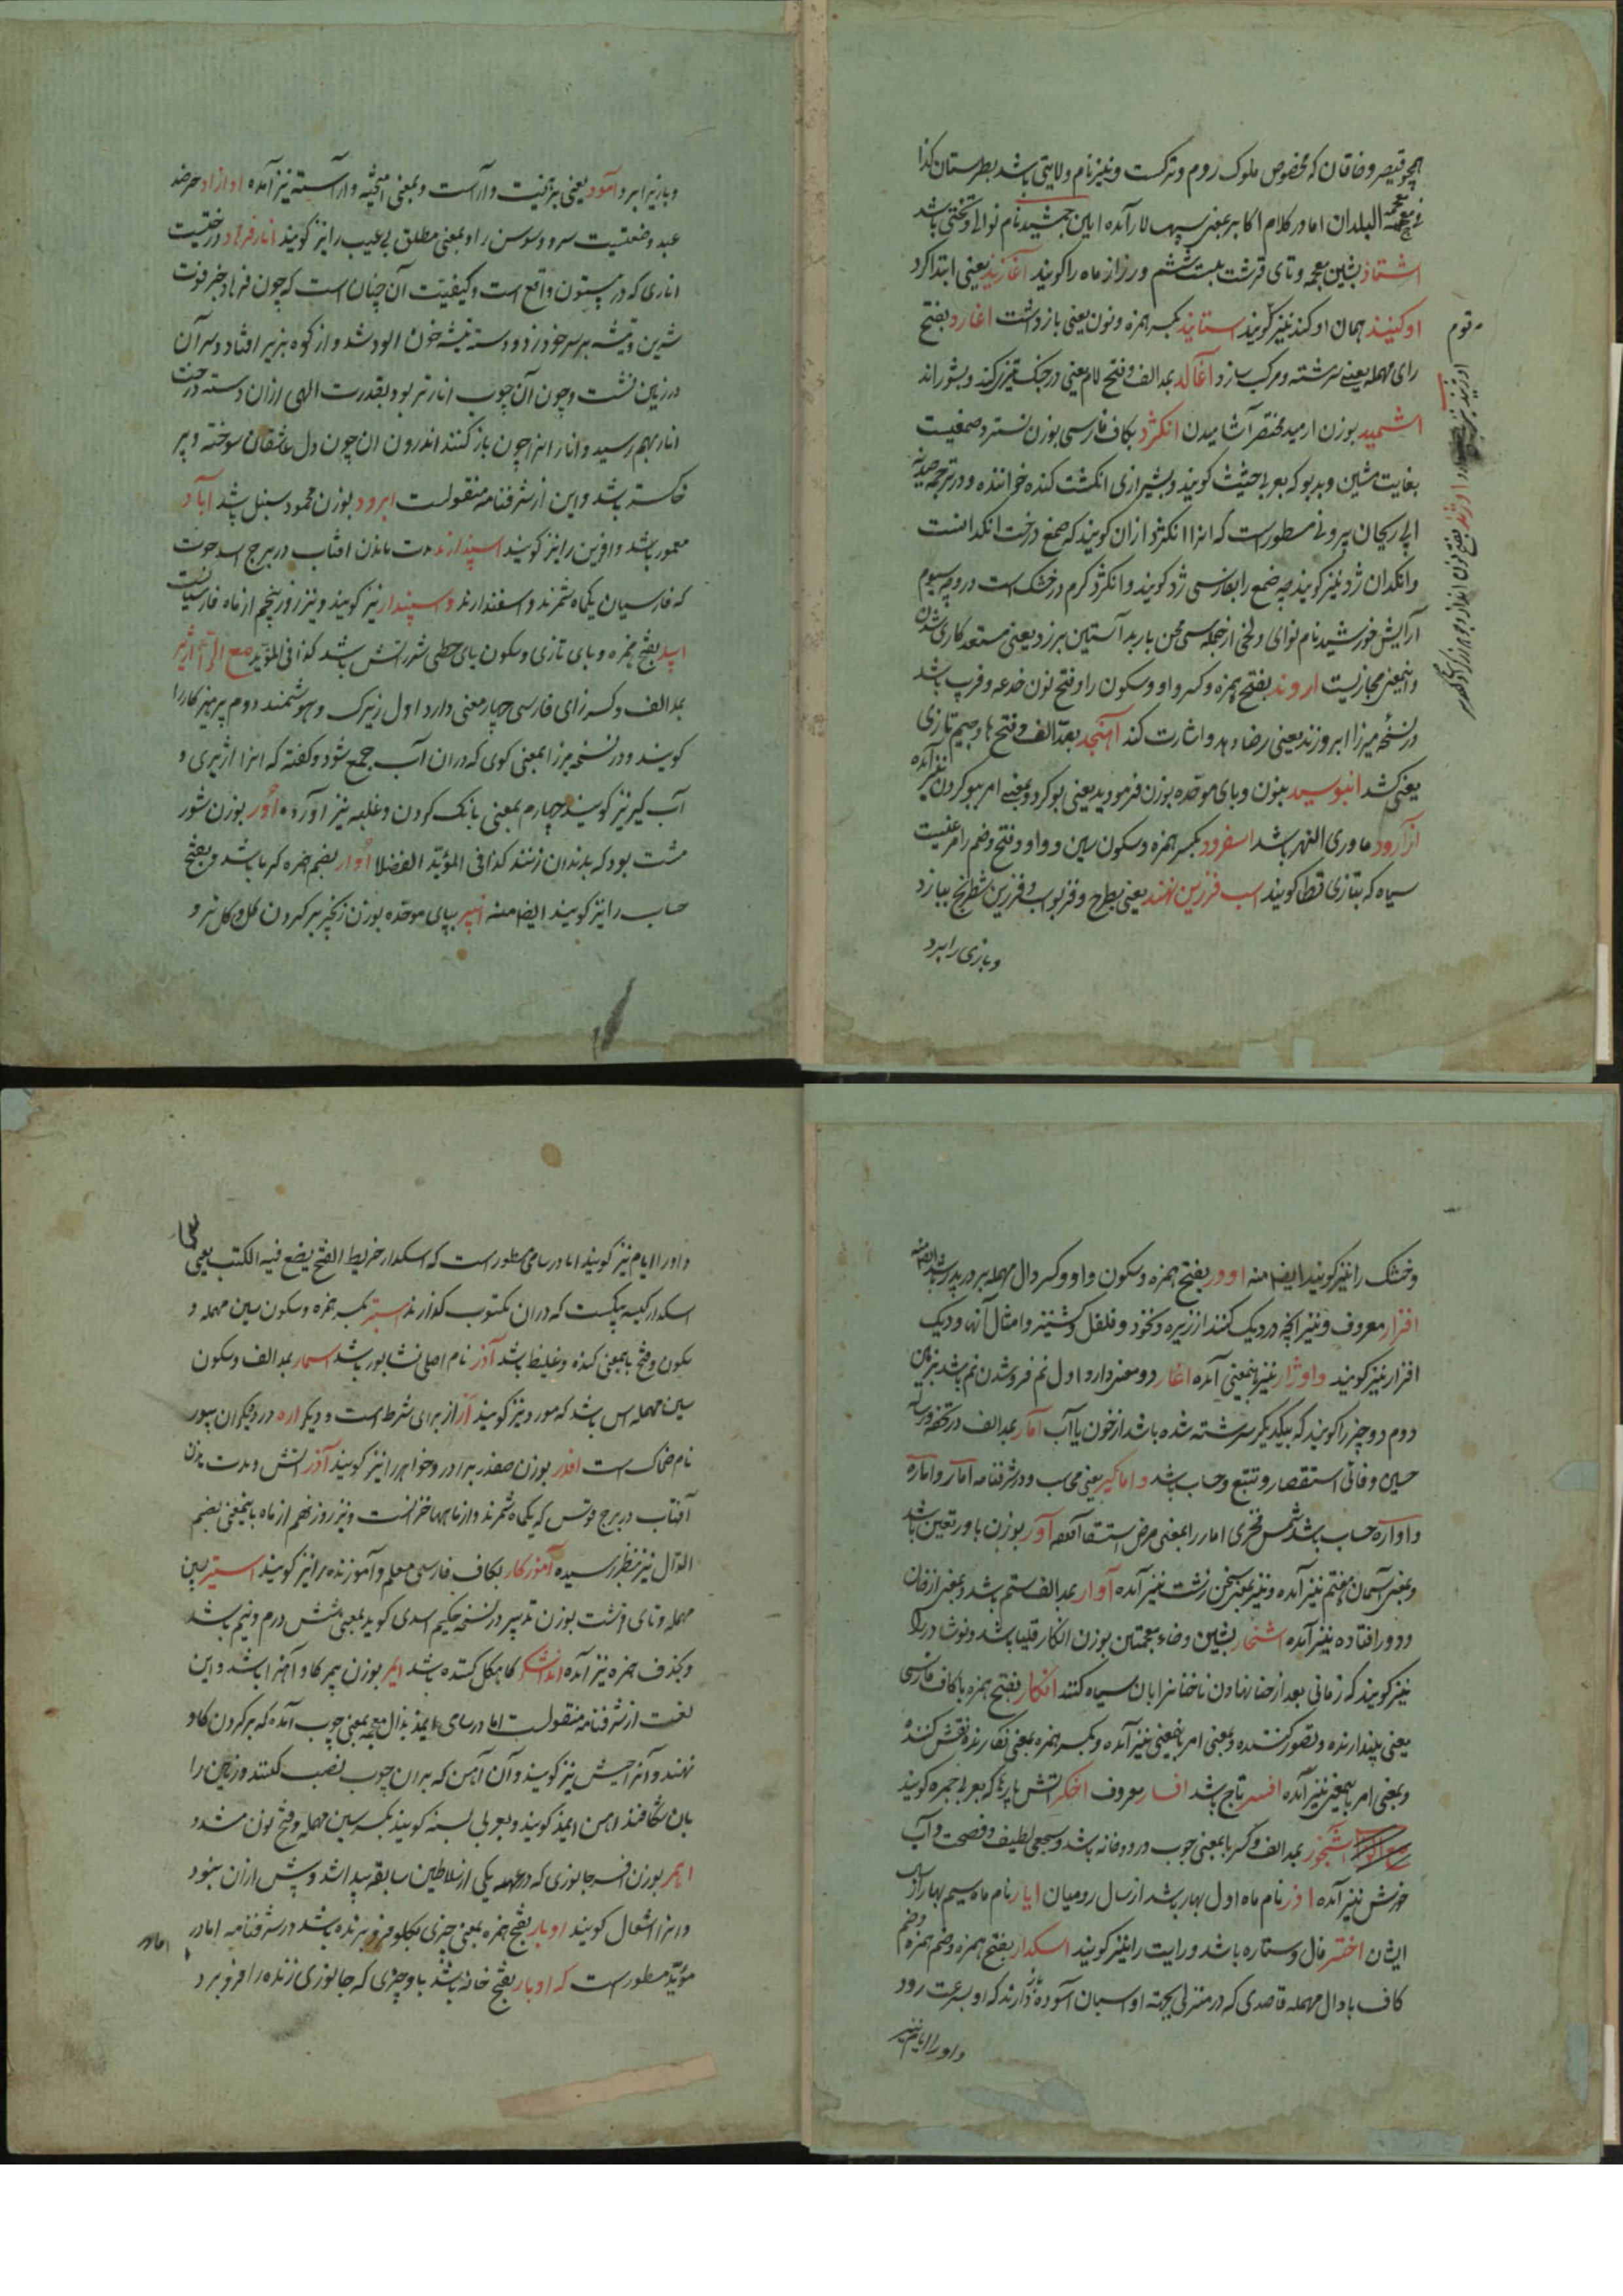 همچو قیصر و خاقان که مخصوص ملوک روم و ترکست و نیز نام ولایتی باشد بطبرستان کذا
فی معجمه البلدان اما در کلام اکابر بمعنی سپهسالار آمده ایاین جمشید نام نوائی و تختی باشد
اشتاذ بشین معجمه و تای قرشت بیست ششم روز از ماه را کویند آغازید یعنی ابتدا کرد
اوکنید همان اوکند نیز کویند استانید بکسر همزه و نون یعنی باز داشت اغارد بفتح
رای مهمله یعنی سرشته و مرکب سازد آغالد بمد الف و فتح لام یعنی در جنک تیز کند و بشوراند
اشمید بوزن ارمید مختصر آشامیدن انکژد بکاف فارسی بوزن نسترد صمغیست
بغایت مشین و بدبو که بعربی حیثیث کویند و بشیرازی انکشت کنده خوانند و در ترجمه صیدنه
ابی ریحان بیرونی مسطور است که انرا انکژد ازان کویند که صمغ درخت انکدانست
وانکدان ژد نیز کویند چه صمغ را بفارسی ژد کویند و انکژد کرم و خشک است در درجه سیوم
آرایش خورشید نام نوای و لحنی از جمله سی لحن باربد آستین برزد یعنی مستعد کاری شدن
واینمعنی مجازیست اروند بفتح همزه و کسر واو و سکون را و فتح نون خدعه و فریب باشد
در نسخه میرزا ابروزند یعنی رضا دهد و اشارت کند آهنجد بمد الف و فتح ها و جیم تازی
یعنی کشد انبوسید بنون و بای موحده بوزن فرمودید یعنی بو کرد و بمعنی امر ببو کردن نیز آمده
ازآرود ماوری النهر باشد اسفرود بکسر همزه و سکون سین و واو و فتح و ضم را مرغیست
سیاه که بتازی قطا کویند اسب فرزین نهند یعنی بطرح و فریب و فرزین شطرنج ببازد
و بازی را برد
و بازیرا برد آمود یعنی بر آمیخت و آراست و بمعنی آمیخته و آراسته نیز آمده اوازاد حر ضد
عبد و ضعتیست سرو و سوسن را و بمعنی مطلق بی عیب را نیز کویند انار فرهاد درختیست
اناری که در بیستون واقع است و کیفیت آن چنان است که چون فرهاد خبر فوت
شیرین و تیشه بر سر خود زد و دسته تیشه خون الود شد و از کوه بزیر افتاد و سر آن
در زمین نشست و چون آن چوب انار تر بود بقدرت الهی ازان دسته درخت
انار بهم رسید و انار انرا چون باز کنند اندرون ان چون دل عاشقان سوخته و پر
خاکستر باشد و این از شرفنامه منقولست ابرود بوزن محمود سنبل باشد آباد
معمور باشد و آفرین را نیز کویند اسپندارمذ مدت ماندن افتاب در برج اسد حوت
که فارسیان یکماه شمرند و اسفندارند و سپندار نیز کویند و نیز روز پنجم از ماه فارسیانست
اپید بفتح همزه و بای تازی و سکون یای حطی شرر اتش باشد کذا فی المؤید مع الراء آژیر
بمد الف و کسر زای فارسی چهار معنی دارد اول زیرک و هوشمند دوم پرهیزکار را
کویند و در نسخه میرزا بمعنی کوی که دران آب جمع شود و کفته که انرا اژیری و
آب کیر نیز کویند چهارم بمعنی بانک کردن و غلبه نیز آورده اور بوزن شور
مشت بود که بدندان زنند کذا فی المؤید الفضلا اوار بضم همزه کرما باشد و بفتح
حساب را نیز کویند ایضا منه انپیر ببای موحده بوزن زنجیر پر کردن کل و کل تر و
و خشک را نیز کویند ایضا منه اوور بفتح همزه و سکون واو و کسر دال مهمله برادر پدر باشد و ایضا منه
افزار معروف و نیز انچه در دیک کنند از زیره و نخود و فلفل و کشنیز و امثال آنها و دیک
افزار نیز کویند و اوزار نیز باینمعنی آمده اغار دو معنی دارد اول نم فرو شدن نم باشد بزمین
دوم دو چیز را کویند که بیکدیکر سرشته شده باشد از خون یا آب آمار بمد الف در تحفه و رساله
حسین وفائی استقصا و تتبع و حساب باشد و امارکیر یعنی محاسب و در شرفنامه آمار و اماره
و اواره حساب باشد شمس فخری امار را بمعنی مرض استسقا کفته آور بوزن باور تعین باشد
و بمعنی آسمان هفتم نیز آمده و نیز بمعنی سخن زشت نیز آمده آوار بمد الف ستم باشد و بمعنی از خان
و دور افتاده نیز آمده اشخار بشین و خاء معجمتین بوزن انکار قلیا باشد و نوشادر را
نیز کویند که زمانی بعد از حنا نهادن ناخنانرا بان سیاه کنند انکار بفتح همزه با کاف فارسی
یعنی پندارنده و تصور کننده و بمعنی امر باینمعنی نیز آمده و بکسر همزه بمعنی نکارنده نقش کننده
و بمعنی امر باینمعنی نیز آمده افسر تاج باشد افسار معروف اخکر اتش پارها که بعربی جمره کویند
آبشخور بمد الف و کسر با بمعنی جوب در دو خانه باشد و سجعی لطیف و فصحت و آب
خورش نیز آمده اذر نام ماه اول بهار باشد از سال رومیان ایار نام ماه سیم بهار از سال
ایشان اختر فال و ستاره باشد و رایت را نیز کویند اسکدار بفتح همزه و ضم همزه و ضم
کاف با دال مهمله قاصدی که در منزلی بجهته او اسبان آسوده دارند که او بسرعت رود
و او را ایام نیز
و او را ایام نیز کویند اما در سامی مسطور است که اسکدار خریط الفتح یضع فیه الکتب یعنی
اسکدار کیسه پیکست که دران مکتوب کذارند استبر بکسر همزه و سکون سین مهمله و
سکون و فتح با بمعنی کنده و غلیظ باشد آذر نام اصلی نشابور باشد اسمار بمد الف و سکون
سین مهمله اس باشد که مورد نیز کویند ار از برای شرط است و دیکر اره درودکران پیور
نام ضحاک است افدر بوزن صفدر برادر و خواهر را نیز کویند آذر اتش و مدت بودن
آفتاب در برج قوس که یکماه شمرند و از ماهها خزانست و نیز روز نهم از ماه باینمعنی بضم
الدال نیز بنظر رسیده آموزکار بکاف فارسی معلم و آموزنده را نیز کویند استیر بسین
مهمله و تای قرشت بوزن تدبیر در نسخه حکیم اسدی کوید بمعنی شش درم و نیم باشد
و بحذف همزه نیز آمده اندایشکر کاهکل کننده باشد ایمر بوزن پیمر کاو آهن باشد و این
لغت از شرفنامه منقولست اما در سامی ایمذ بذال معجمه بمعنی چوب آمده که بر کردن کاو
نهند و آنرا جیش نیز کویند و آن آهن که بران چوب نصب کنند و زمین را
بان شکافند آهن ایمذ کویند و بعربی لسنه کویند بکسر سین مهمله و فتح نون مشدد
ایمر بوزن افسر جانوری که در عهد یکی از سلاطین سابقه پیدا شد و پیش ازان نبود
و انرا اشغال کویند اوبار بفتح همزه بمعنی چیزی بکلو فرو برنده باشد در شرفنامه اما در
مؤید مسطور است که اوبار بفتح خانه باشد با و چیزی که جانوری زنده را فرو برد